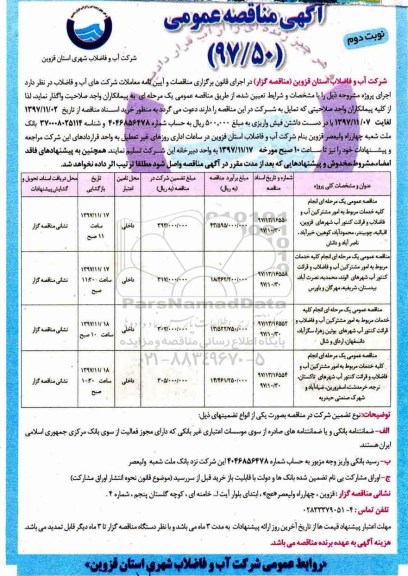 آگهی مناقصه عمومی
(۹۷/۵۰)
نوبت دوم
شرکت آب و فاضلاب شهری استان قزوین
شرکت آب و فاضلاب استان قزوین (مناقصه گزار) در اجرای قانون برگزاری مناقصات و آیین نامه معاملات شرکت های آب و فاضلاب در نظر دارد
اجرای پروژه مشروحه ذیل را با مشخصات و شرایط تعیین شده، از طریق مناقصه عمومی یک مرحله ای به پیمانکاران واجد صلاحیت واگذار نماید، لذا
از کلیه پیمانکاران واجد صلاحیتی که تمایل به شرکت در این مناقصه را دارند دعوت می گردد به منظور خرید اسناد مناقصه از تاریخ ۱۳۹۷/۱۱/۰۲
لغایت ۱۳۹۷/۱۱/۰۷ با در دست داشتن فیش واریزی به مبلغ ۵۰۰،۰۰۰ ریال به حساب شماره ۴۰۴۶۸۵۶۴۷۸ و شناسه ۳۷۰۰۰۸۰۳۵۱۱۴ بانک
ملت شعبه چهارراه ولیعصر قزوین بنام شرکت آب و فاضلاب استان قزوین در ساعات اداری روزهای غیر تعطیل به واحد قراردادهای این شرکت مراجعه
و پیشنهادات خود را نیز تا ساعت ۱۰ صبح مورخه ۱۳۹۷/۱۱/۱۷ به واحد دبیرخانه این شرکت تسلیم نمایند همچنین به پیشنهادهای فاقد
امضاء، مشروط، مخدوش و پیشنهادهایی که بعد از مدت مقرر در آگهی مناقصه واصل شود مطلقا ترتیب اثر داده نخواهد شد.
عنوان و مشخصات کلی پروژه
شماره و تاریخ اسناد مناقصه
مبلغ برآورد مناقصه (به ریال)
مبلغ تضمین شرکت در مناقصه (به ریال)
محل تامین اعتبار
تاریخ بازگشایی
محل دریافت اسناد، تحویل و گشایش پیشنهادات
مناقصه عمومی یک مرحله ای انجام
کلیه خدمات مربوط به امور مشترکین آب و
فاضلاب و قرائت کنتور آب شهرهای قزوین،
اقبالیه، چوبیندر، محمودآباد، کوهین، خیرآباد،
ناصر آباد و دانش
داخلی
۱۳۹۷/۱۱/۱۷
ساعت
۱۱ صبح
نشانی مناقصه گزار
مناقصه عمومی یک مرحله ای انجام کلیه خدمات
مربوط به امور مشترکین آب و فاضلاب و قرائت
کنتور آب شهرهای الوند، محمدیه، نصرت آباد،
بیدستان، شریفیه، مهرگان و باورس
داخلی
۱۳۹۷/۱۱/۱۷
ساعت ۱۱:۳۰
صبح
نشانی مناقصه گزار
مناقصه عمومی یک مرحله ای انجام کلیه
خدمات مربوط به امور مشترکین آب و فاضلاب و
قرائت کنتور آب شهرهای بوئین زهرا، سگزآباد،
دانسفهان، ارداق و شال
داخلی
۱۳۹۷/۱۱/۱۸
ساعت ۱۰ صبح
نشانی مناقصه گزار
مناقصه عمومی یک مرحله ای انجام
کلیه خدمات مربوط به امور مشترکین آب و
فاضلاب و قرائت کنتور آب شهرهای تاکستان،
نرجه، خرمدشت، اسفرورین، ضیاءآباد و
شهرک صنعتی حیدریه
۳۰۵/۰۰۰/۰۰۰
داخلی
۱۳۹۷/۱۱/۱۸
ساعت ۱۰:۳۰
صبح
نشانی مناقصه گزار
ParsNamadData
پایگاه اطلاع رسانی مناقصه و مزایده
۰۲۱-۸۸۳۴۹۶۷۰-۵
توضیحات: نوع تضمین شرکت در مناقصه بصورت یکی از انواع تضمینهای ذیل:
الف- ضمانتنامه بانکی و یا ضمانتنامه های صادره از سوی موسسات اعتباری غیر بانکی که دارای مجوز فعالیت از سوی بانک مرکزی جمهوری اسلامی
ایران هستند.
ب- رسید بانکی واریز وجه مزبور به حساب شماره ۴۰۴۶۸۵۶۴۷۸ این شرکت نزد بانک ملت شعبه ولیعصر
ج- اوراق مشارکت بی نام تضمین شده بانک ها و دولت با قابلیت باز خرید قبل از سررسید (موضوع قانون نحوه انتشار اوراق مشارکت)
نشانی مناقصه گزار: قزوین، چهارراه ولیعصر «عج»، ابتدای بلوار آیت ا... خامنه ای، کوچه گلستان پنجم، شماره ۴.
تلفن تماس: ۴-۰۲۸۳۳۳۷۹۰۵۱
مهلت اعتبار پیشنهاد قیمت ها از تاریخ آخرین روز ارائه پیشنهادات به مدت ۳ ماه می باشد و با نظر دستگاه مناقصه گزار تا ۳ ماه دیگر قابل تمدید می باشد.
هزینه آگهی به عهده برنده مناقصه می باشد.
«روابط عمومی شرکت آب و فاضلاب شهری استان قزوین»